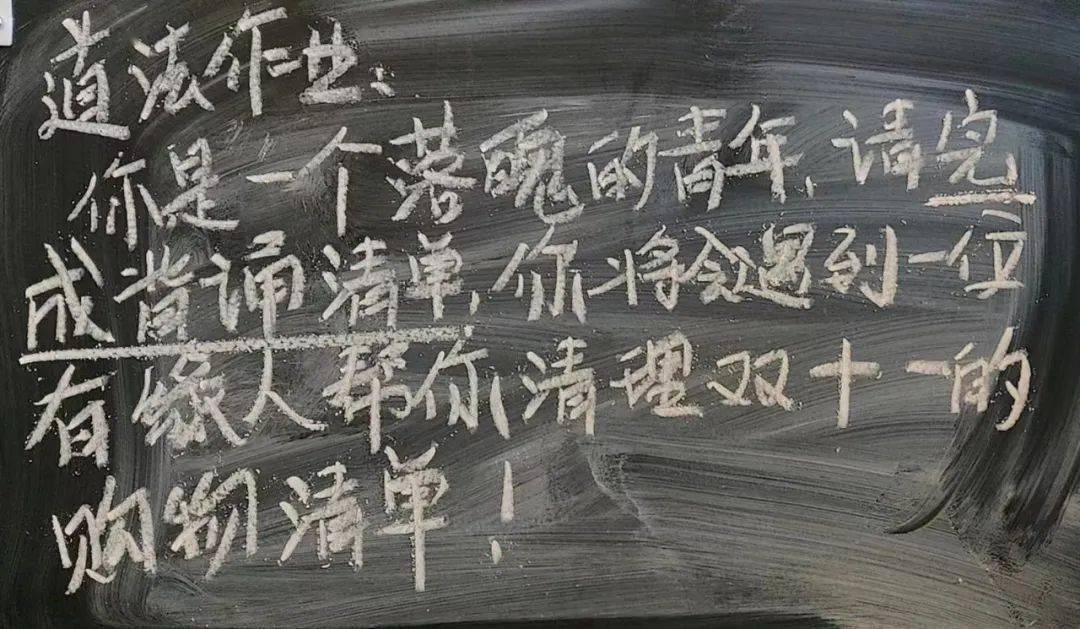 道法作业:
你是一个落魄的青年,请完
成背诵清单,你将会遇到一位
有缘人帮你清理双十一的
购物清单!